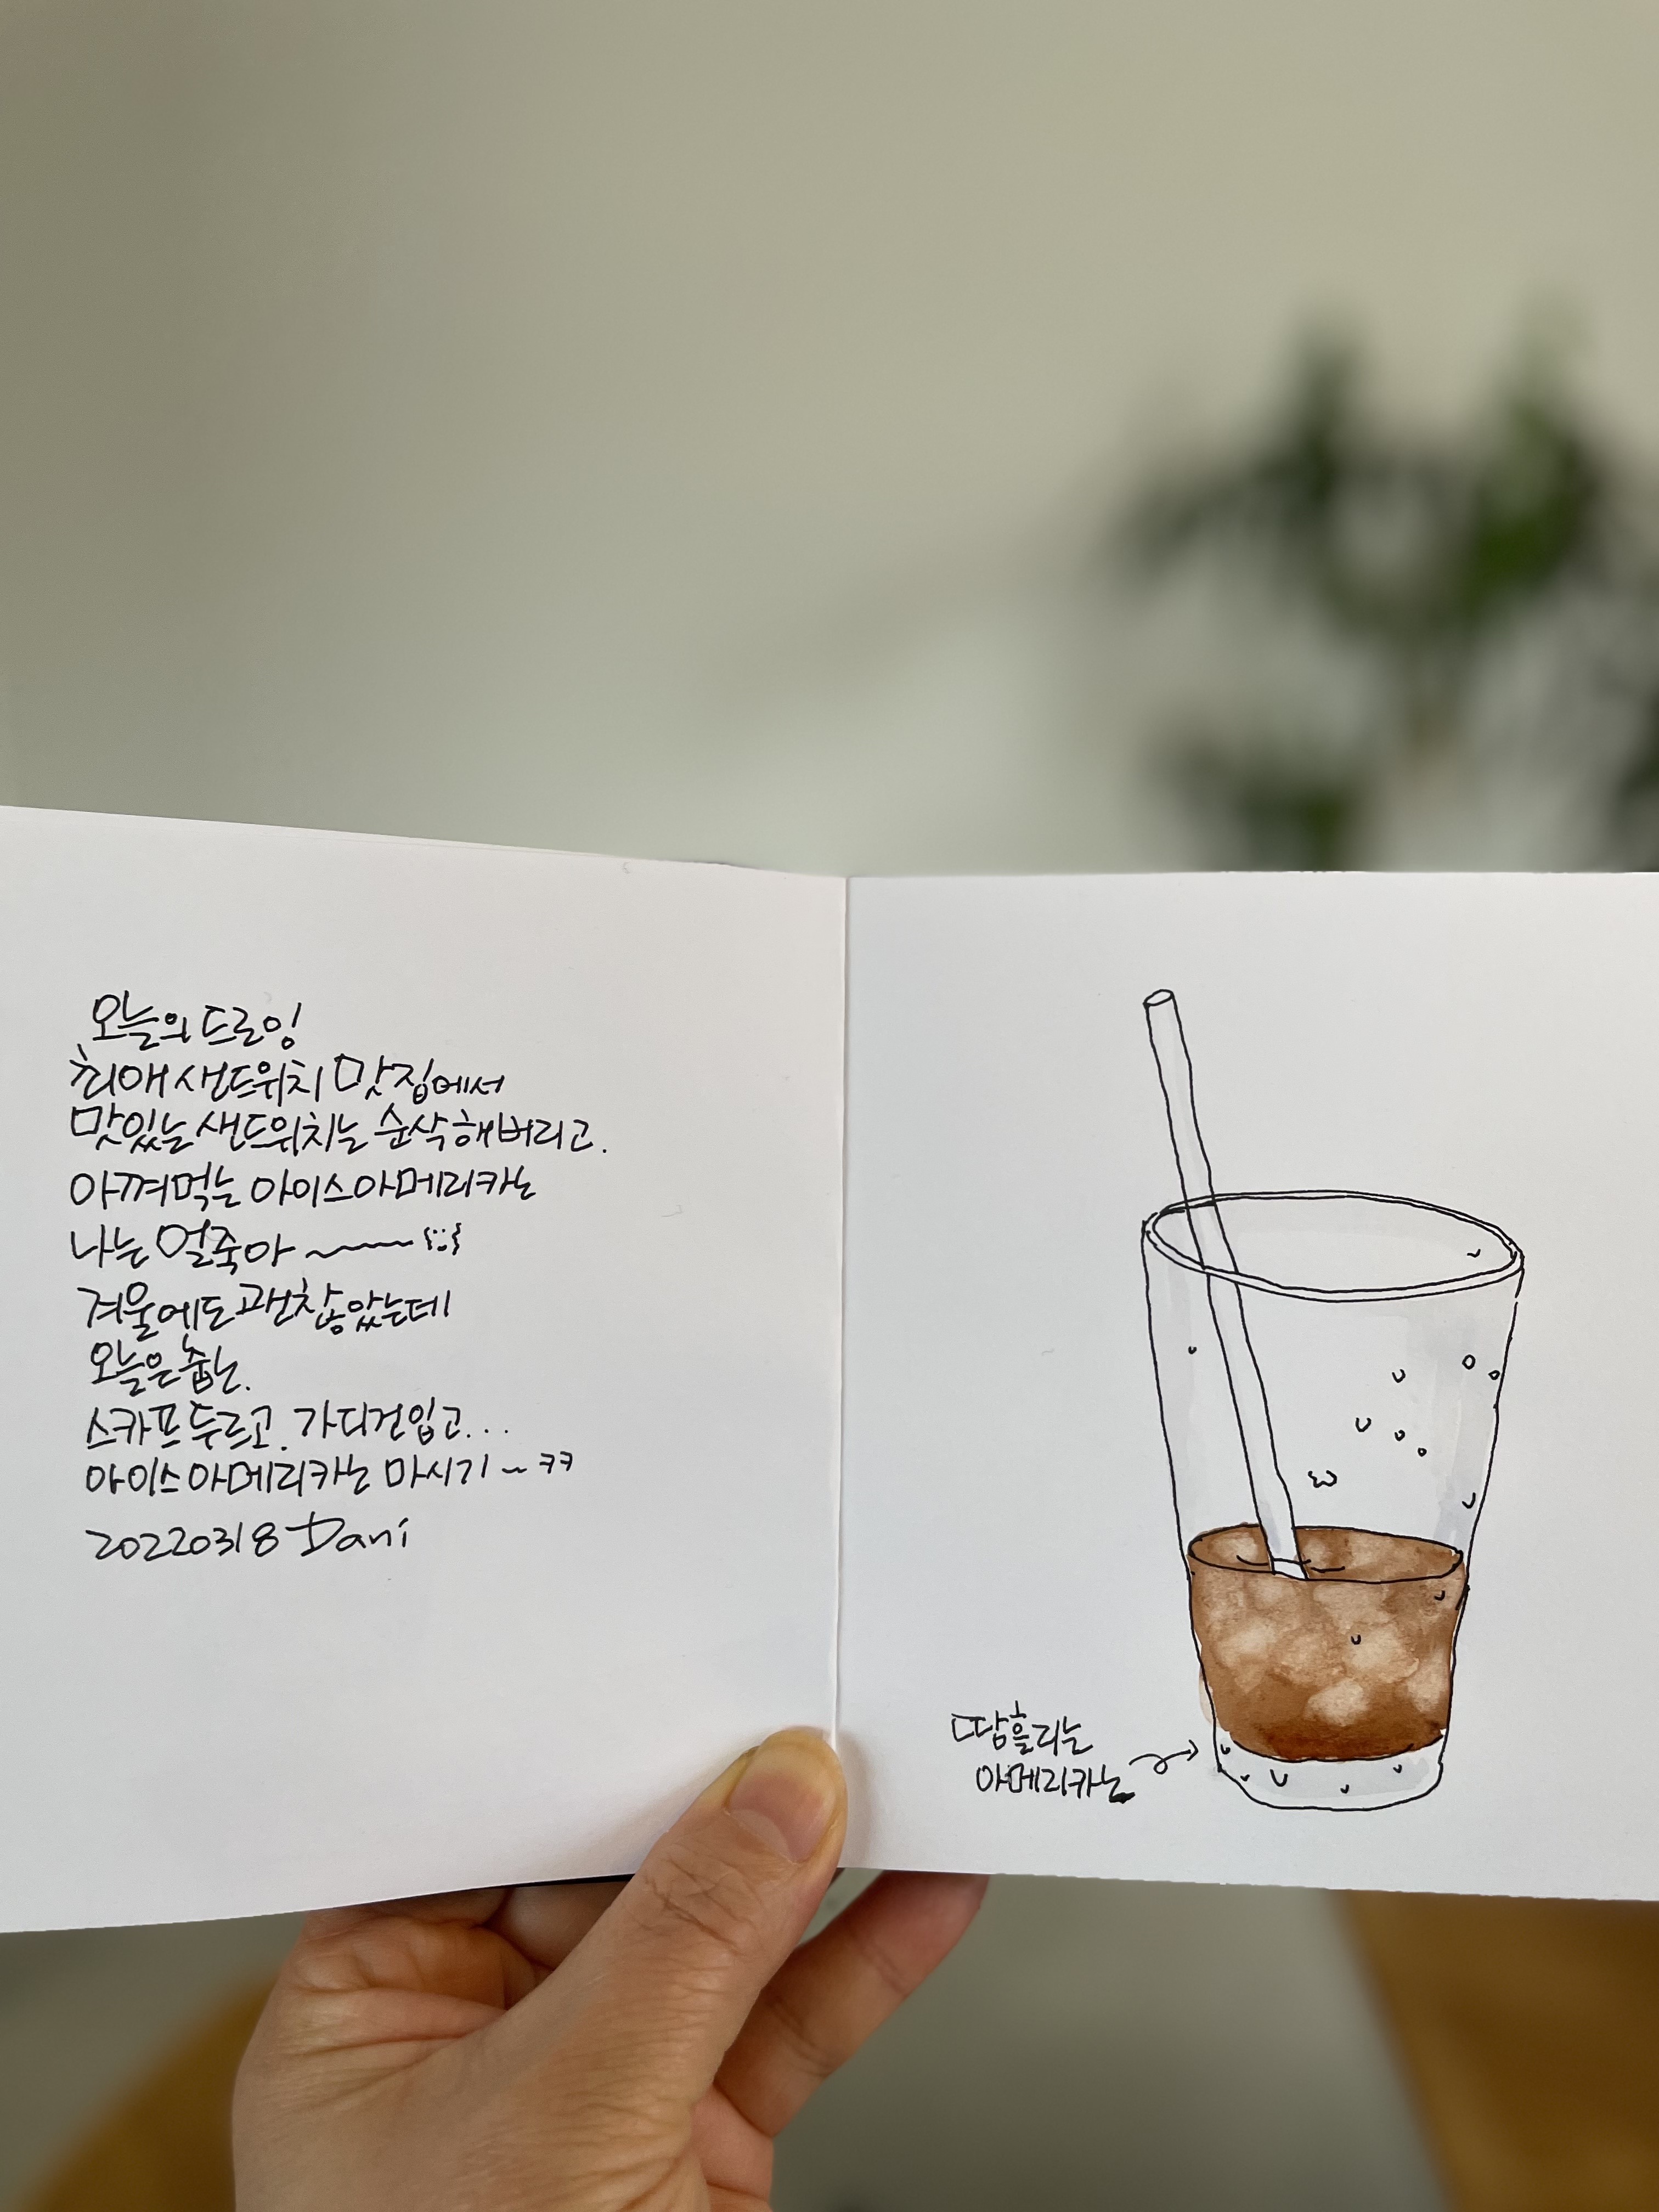 오늘의 드로잉
최애 샌드위치 맛집에서
맛있는 샌드위치는 순삭해버리고.
아껴먹는 아이스아메리카노
나는 얼죽아 ~
겨울에도 괜찮았는데
오늘은 춥눈.
스카프 두르고. 가디건 입고...
아이스 아메리카노 마시기 ~ ㅋㅋ
20220318 Dani
땀흘리는
아메리카노